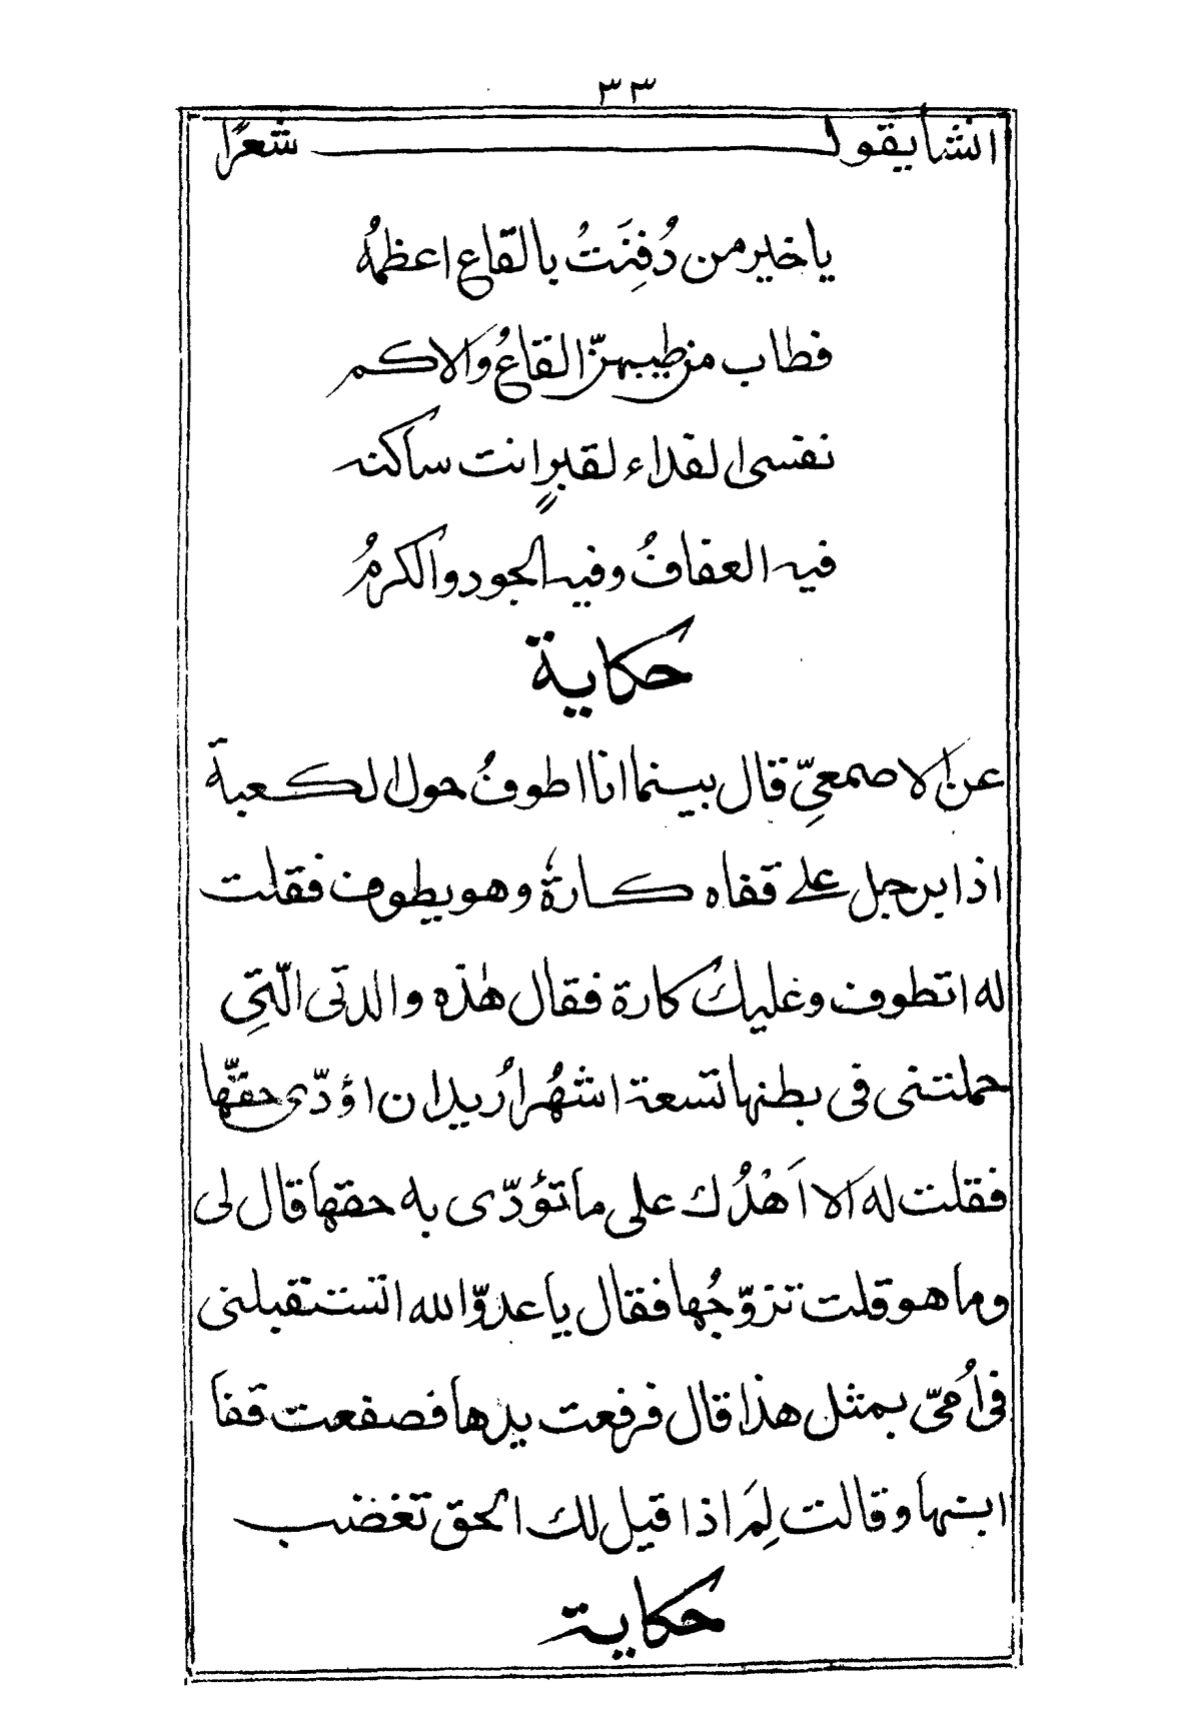 ٣٣
انشا يقول شعرًا
يا خير من دُفِنَتُ بالقاع اعظمهُ
فطاب من طيبهنّ القاعُ والاكم
نفسى الفداء لقبرٍ انت ساكنه
فيه العفافُ وفيه الجود والكرمُ
حكاية
عن الاصمعيِّ قال بينما انا اطوفُ حول الكعبة
اذا برجل على قفاه كارةٌ وهو يطوف فقلت
له اتطوف وغليك كارة فقال هٰذه والدتى الّتِى
حملتنى فى بطنها تسعة اشهُر اُريد ان اؤدّى حقّها
فقلت له الا اَهْدُك على ما تؤدّى به حقها قال لى
وما هو قلت تزوّجُها فقال يا عدوّ الله اتستقبلنى
فى اُمىّ بمثل هذا قال فرفعت يدها فصفعت قفا
ابنها وقالت لِمَ اذا قيل لك الحق تغضب
حكاية